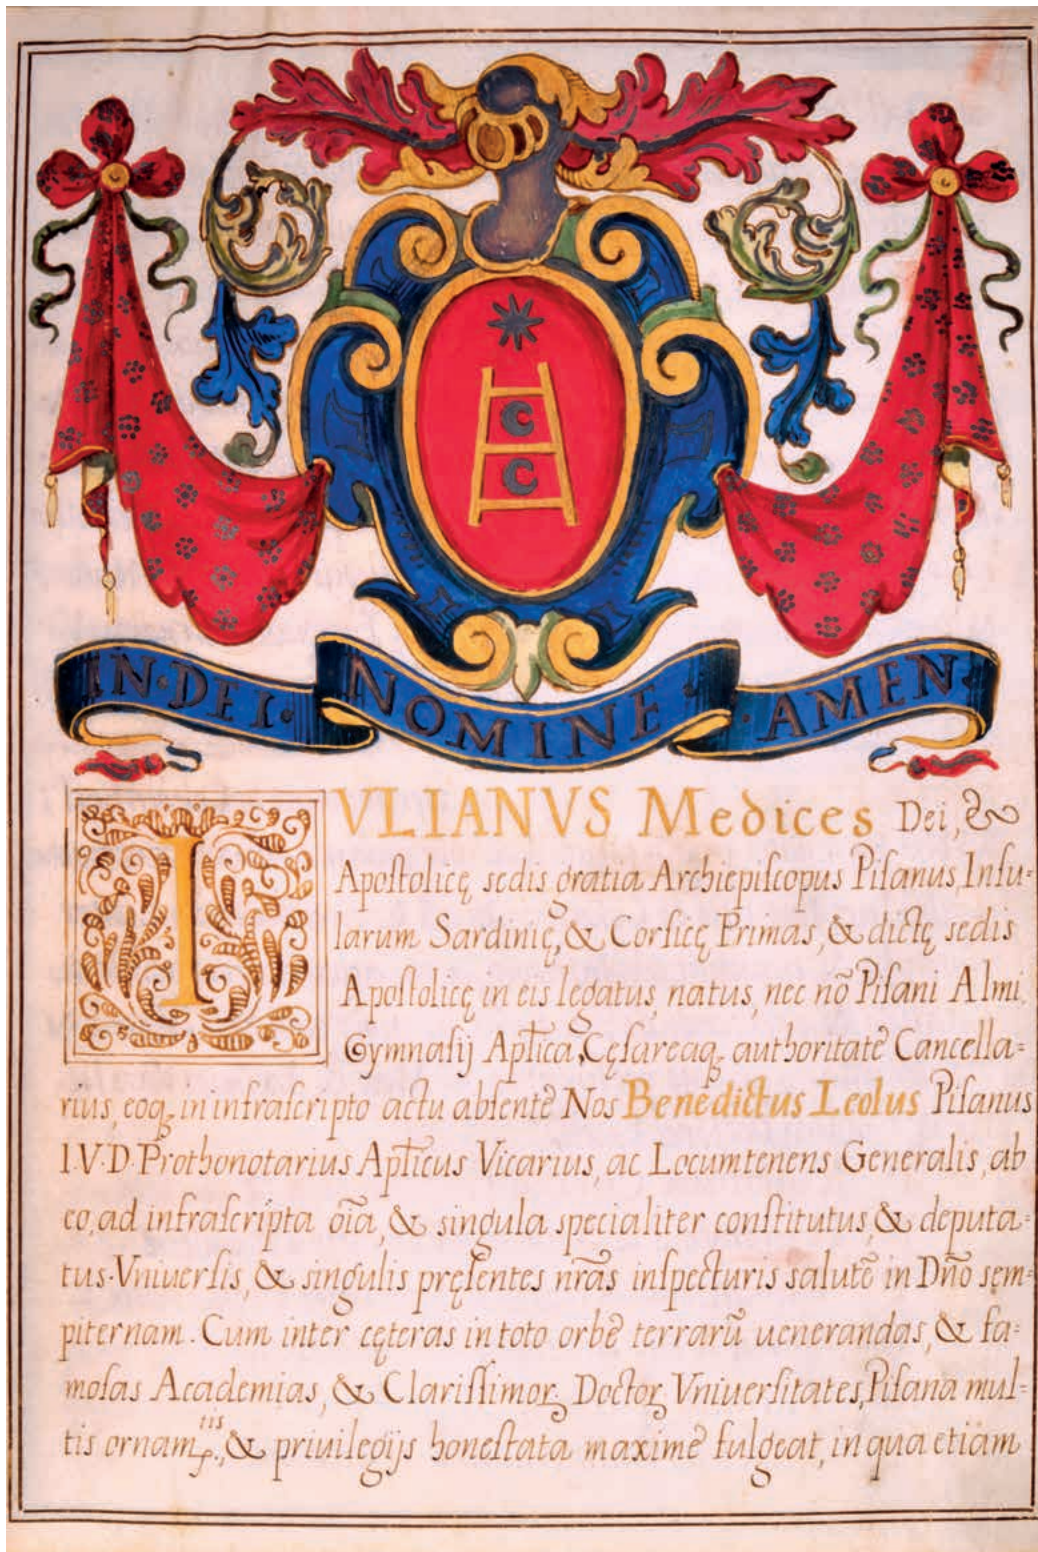 IN·DEI· NOMINE· ·AMEN·
IVLIANVS Medices Dei, &
Apostolicę sedis gratia Archiepiſcopus Piſanus, Inſu=
larum Sardinię, & Corſicę Primas, & dictę sedis
Apoſtolicę in eis legatus, natus, nec nõ Piſani Almi,
Gymnaſij Apl̃ica, Cęſareaq̧ authoritatẽ Cancella=
rius, eoq̧ in infraſcripto actu abſentẽ Nos Benedictus Leolus Piſanus
I.V.D. Prothonotarius Apl̃icus Vicarius, ac Locumtenens Generalis, ab
eo, ad infraſcripta oĩa, & singula specialiter conſtitutus, & deputa=
tus. Vniuerſis, & singulis pręſentes nr̃as inſpecturis salutẽ in Dñõ sem=
piternam. Cum inter cęteras in toto orbẽ terrarũ uenerandas, & fa=
moſas Academias, & Clariſſimoꝝ Doctoꝝ Vniuerſitates, Piſana mul=
tis ornam.tis, & priuilegijs honeſtata maximẽ fulgeat, in qua etiam